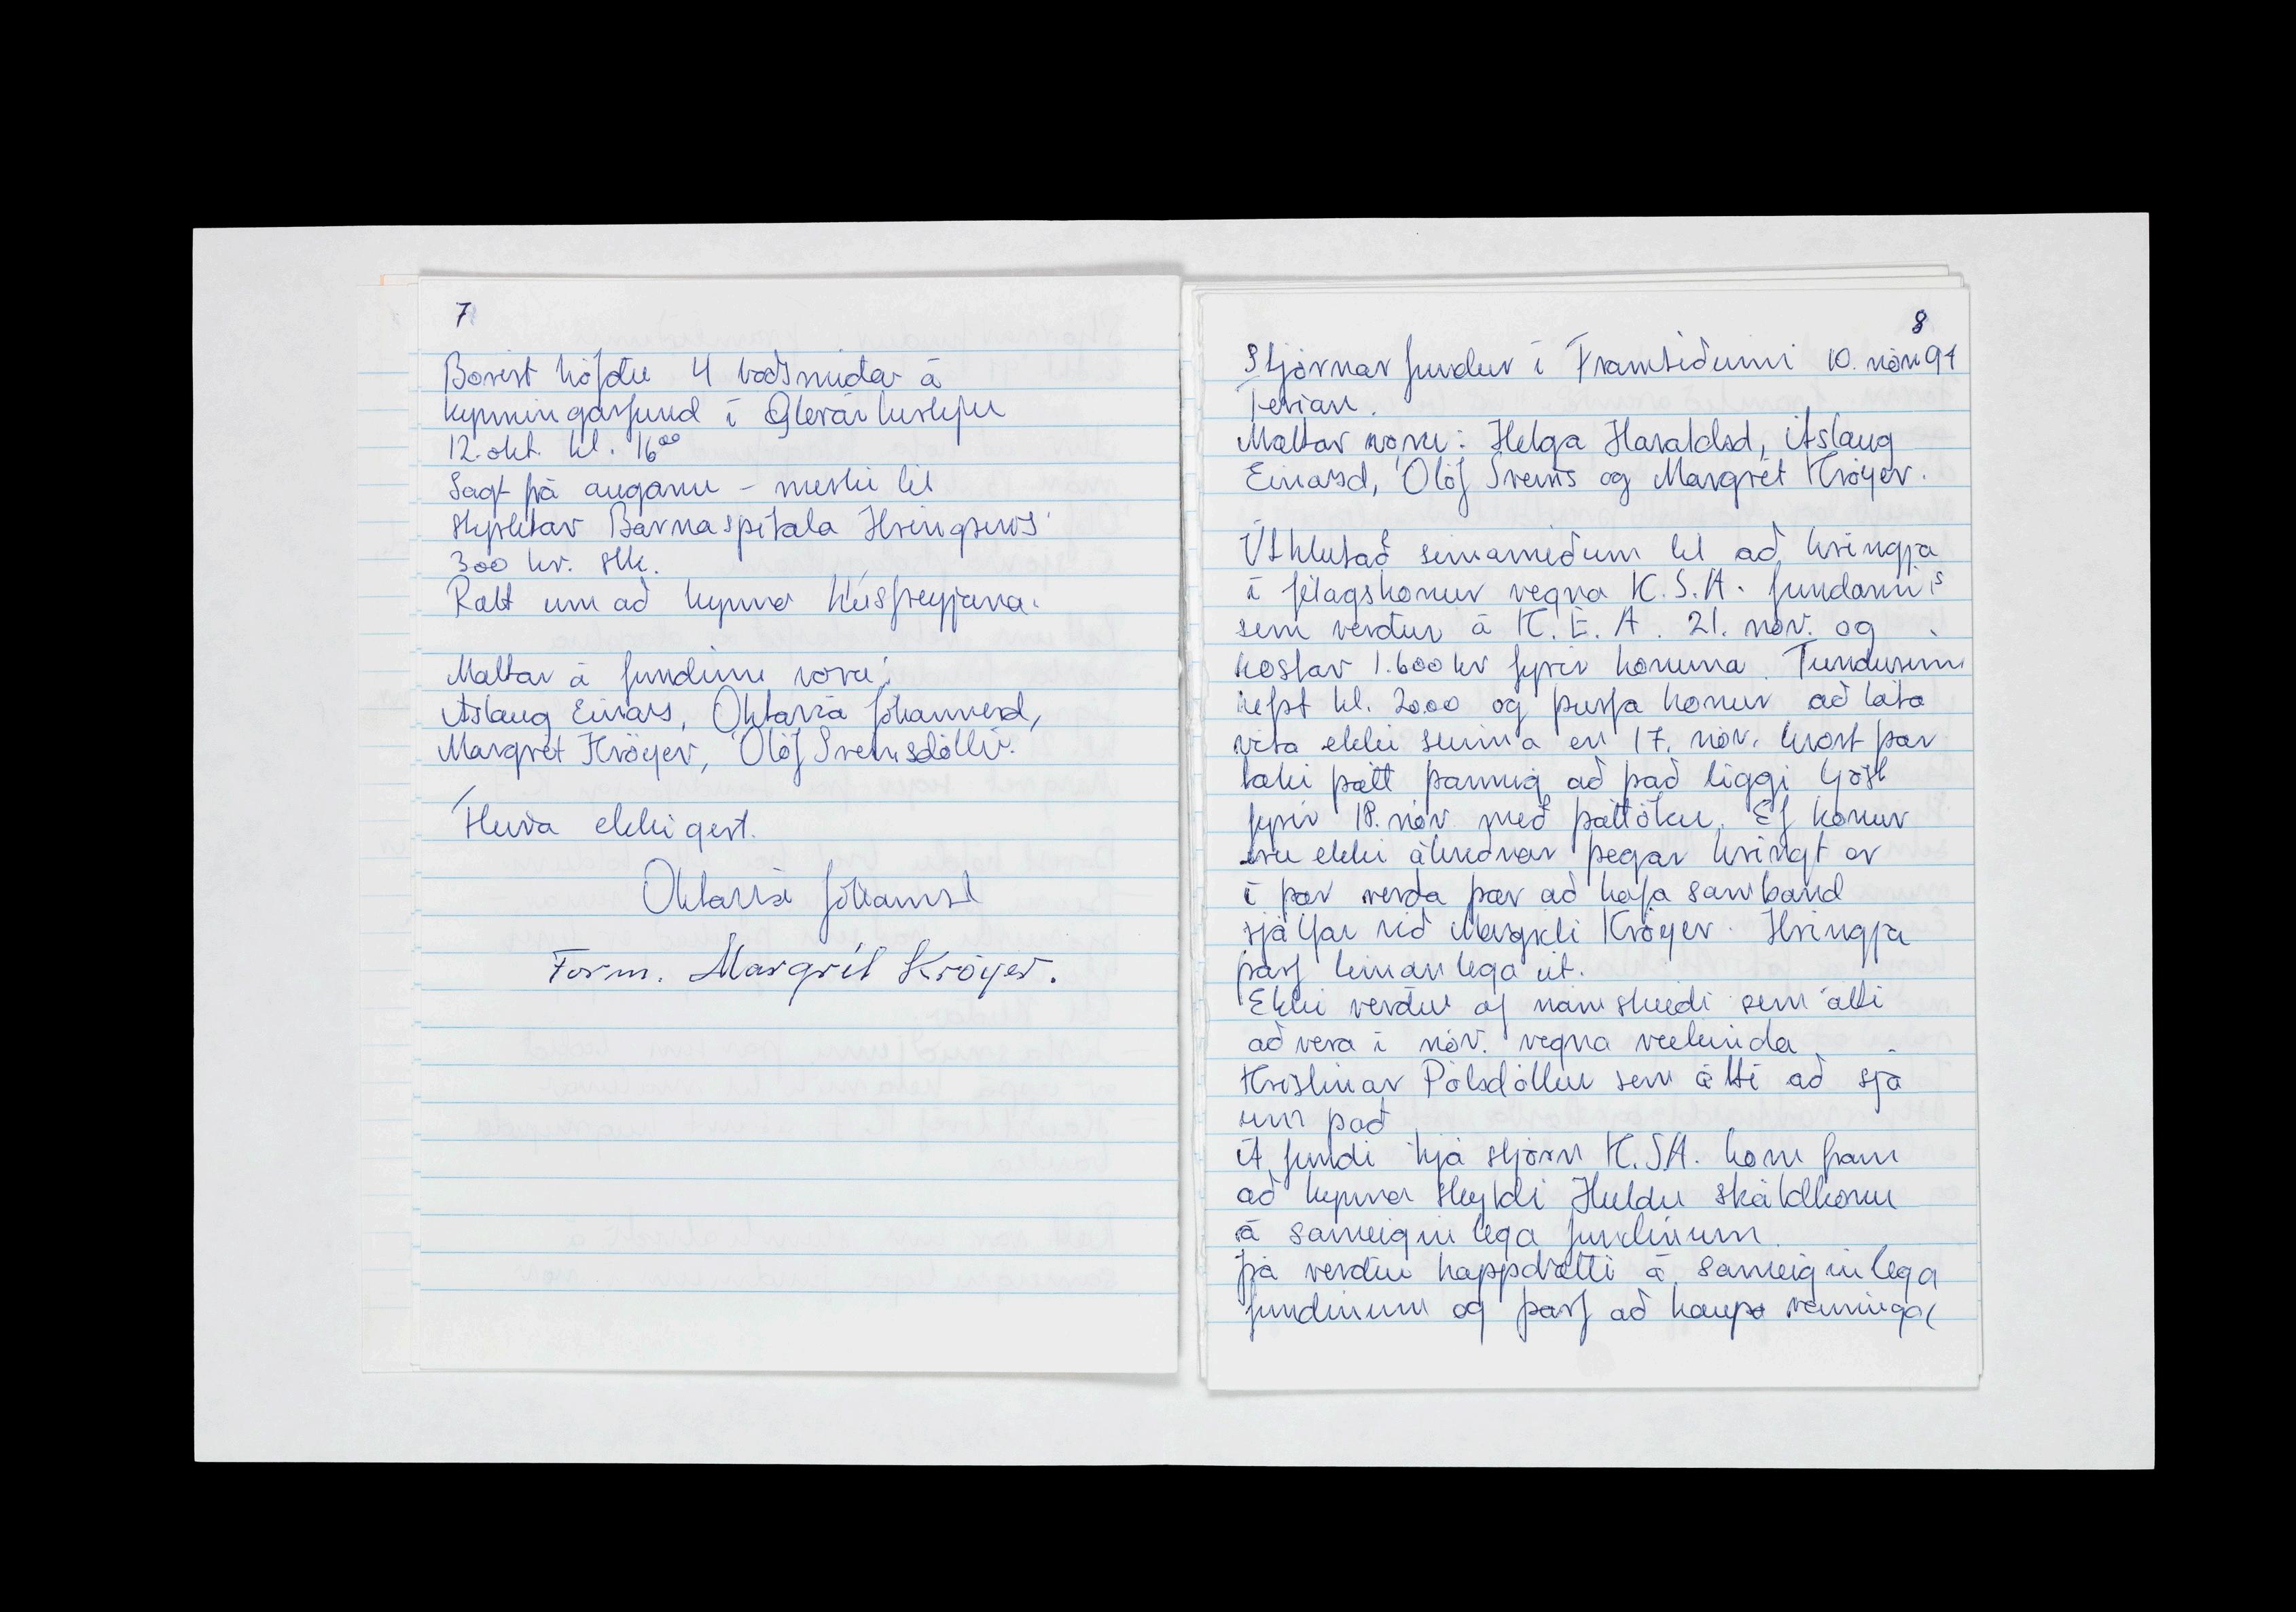 7
Borist höfðu 4 boðsmiðar á
kynningarfund í Glerárkirkju
12. okt. kl. 16⁰⁰
Sagt frá anganu - merki til
styrktar Barnaspítala Hringsins
300 kr. stk.
Rætt um að kynna Húsfreyjuna.
Mættar á fundinn voru:
Áslaug Einars, Oktavía Jóhannesd,
Margrét Kröyer, Ólöf Sveinsdóttir.
Fleira ekki gert.
Oktavía Jóhannsd
Form. Margrét Kröyer.
8
Stjórnarfundur í Framtíðinni 10. nóv 94
Terian.
Mættar voru: Helga Haraldsd, Áslaug
Einarsd, Ólöf Sveins og Margrét Kröyer.
Úthlutað símamiðum til að hringja
í félagskonur vegna K.S.A. fundarins
sem verður á K.E.A. 21. nóv. og
kostar 1.600 kr fyrir konuna. Fundurinn
hefst kl. 20.00 og þurfa konur að láta
vita ekki seinna en 17. nóv. hvort þær
taki þátt þannig að það liggi ljóst
fyrir 18. nóv með þátttöku. Ef konur
eru ekki ákveðnar þegar hringt er
í þær verða þær að hafa samband
sjálfar við Margréti Kröyer. Hringja
þarf tímanlega út.
Ekki verður af námskeiði sem átti
að vera í nóv. vegna veikinda
Kristínar Pálsdóttur sem átti að sjá
um það
Á fundi hjá stjórn K.S.A. kom fram
að kynna skyldi Huldu skáldkonu
á sameiginlega fundinum.
Þá verður happdrætti á sameiginlega
fundinum og þarf að kaupa vinninga